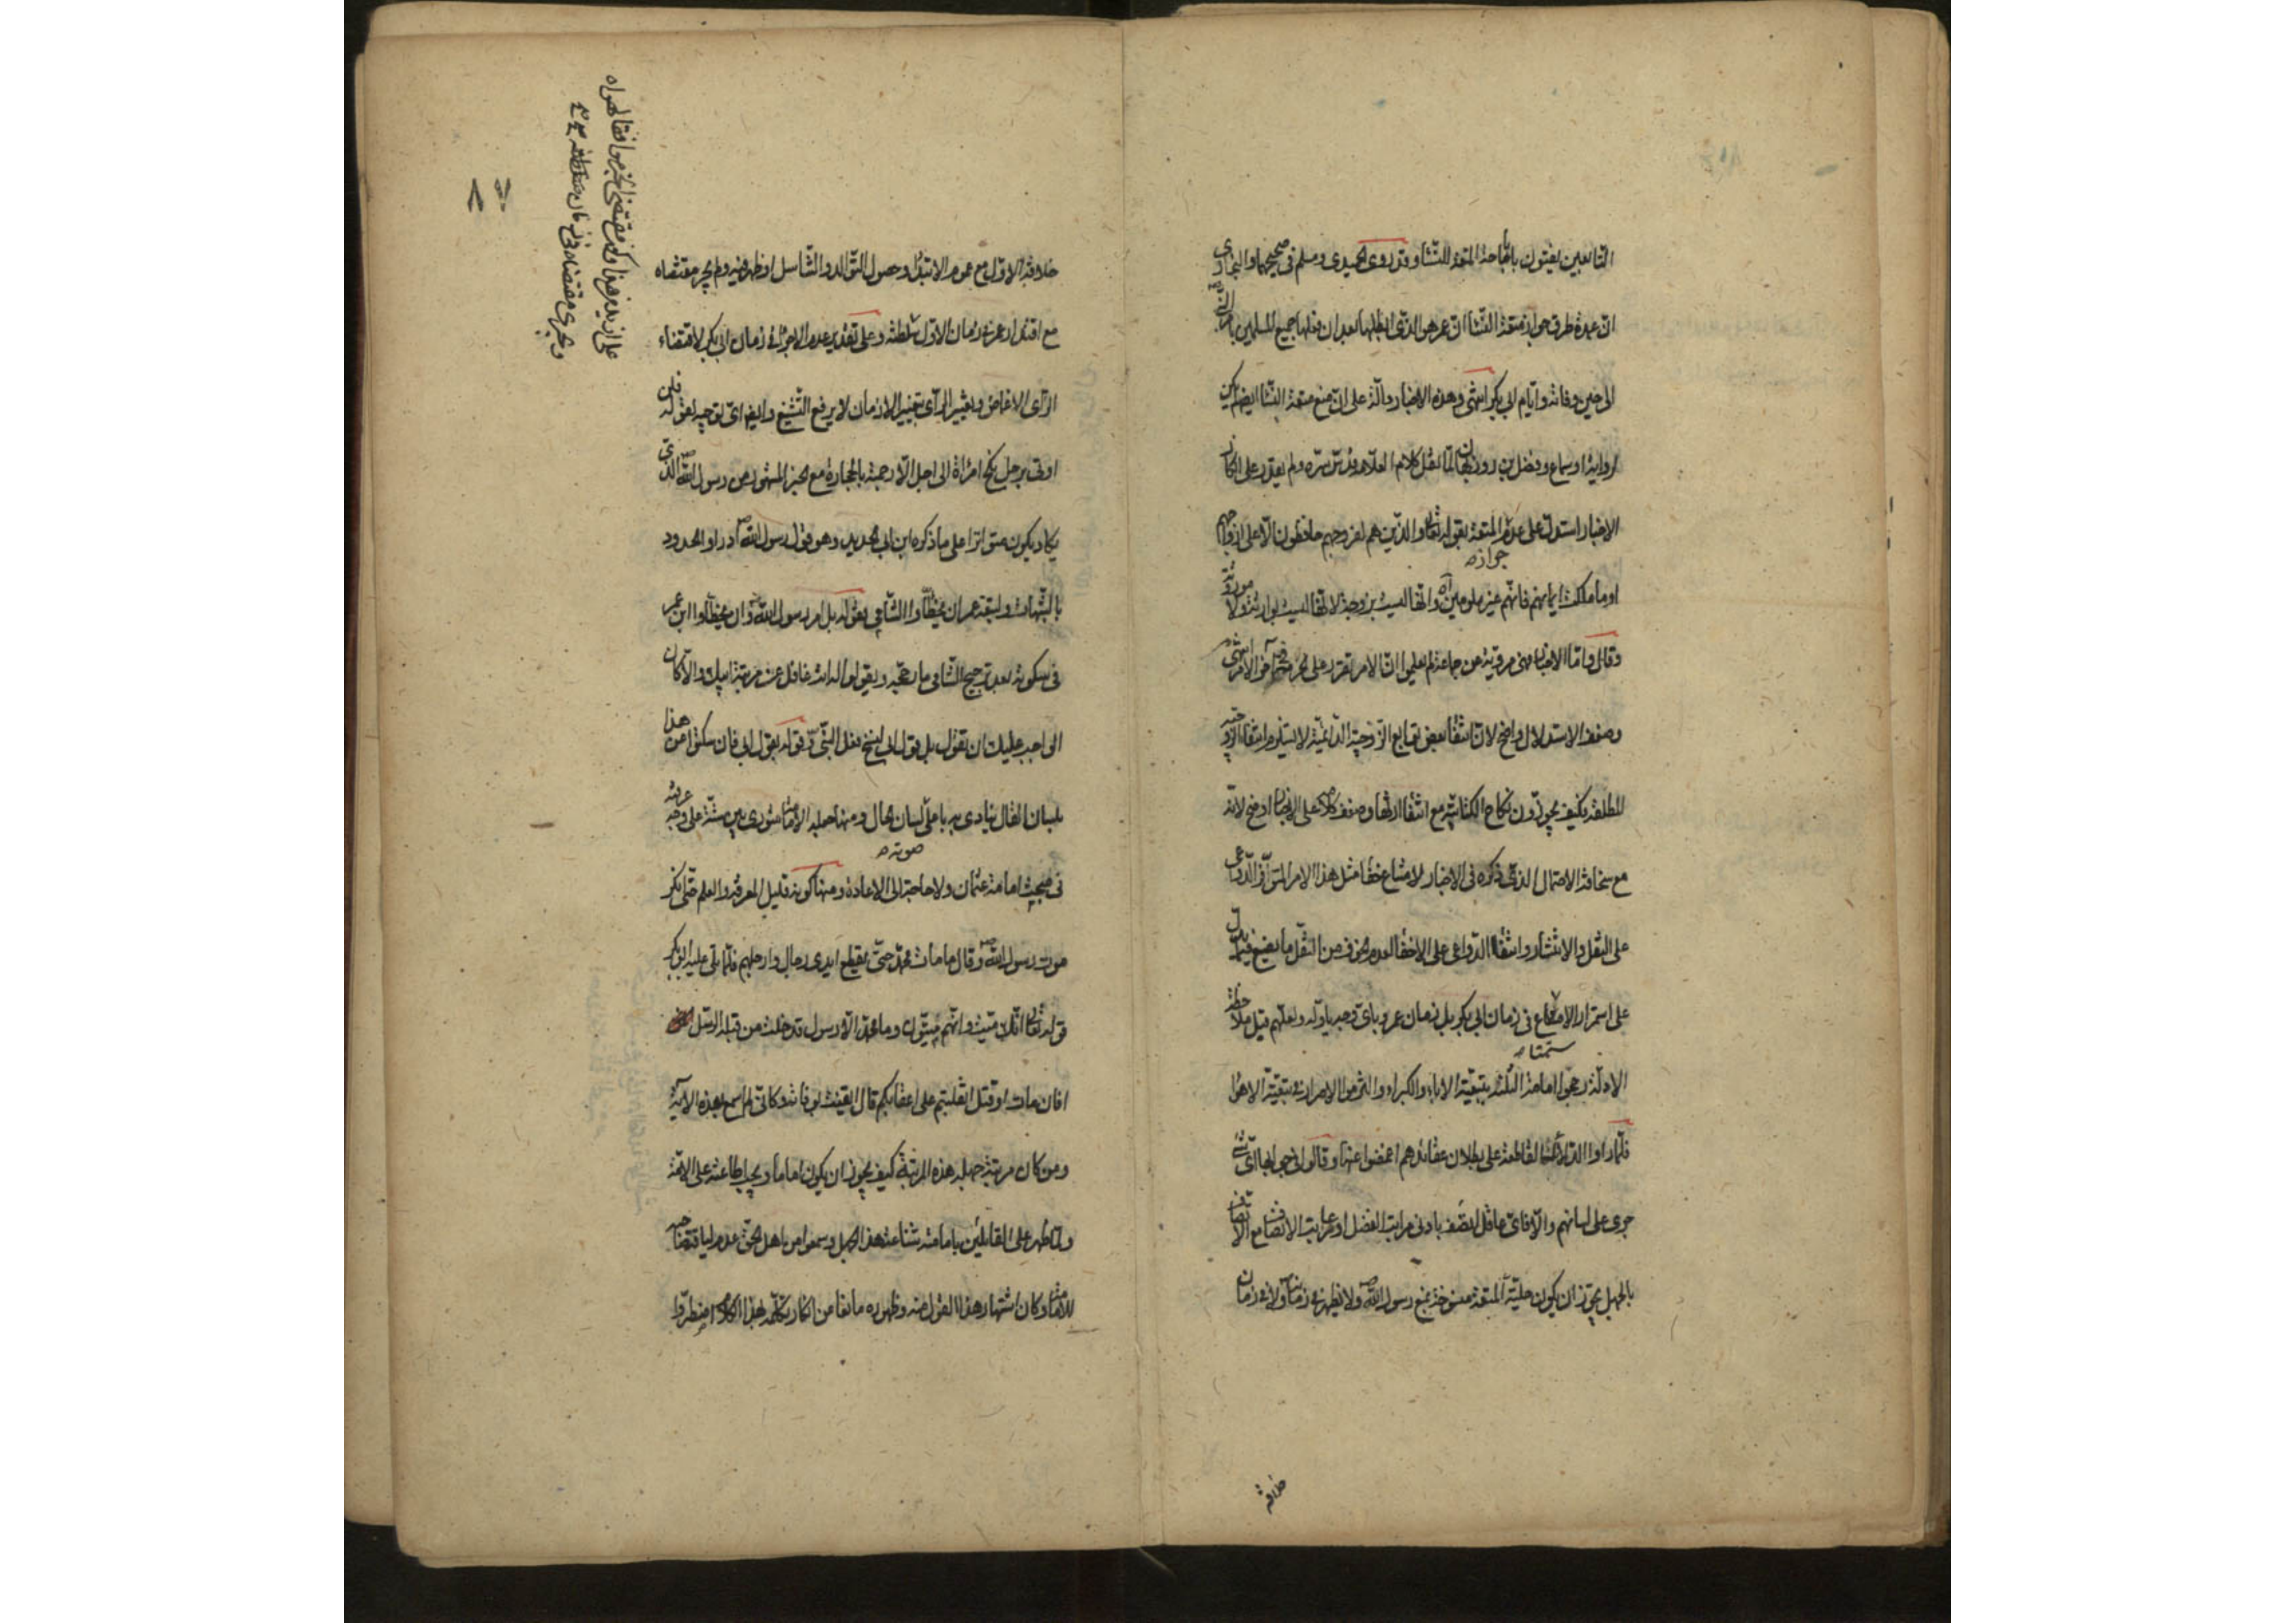 التابعين يفتون باباحة المتعة للنساء وقد روى الحميدي ومسلم في صحيحهما والبخاري
ان عدة طرق جواز متعة النساء ان عمر هو الذي ابطلها بعد ان فعلها جميع المسلمين بامر النبي ص
الى حين وفاته وايام ابي بكر انتهى وهذه الاخبار دالة على ان منع متعة النساء ايضا لم يكن
لرواية او سماع وفضل بن روزبهان لما نقل كلام العلامة قدس سره ولم يقدر على انكار
الاخبار استدل على عدم المتعة بقوله تعالى والذين هم لفروجهم حافظون الا على ازواجهم
جوازه
او ما ملكت ايمانهم فانهم غير ملومين الآه وانها ليست بزوجة لانها ليست بوارثة ولا موروثة
وقال واما الاخبار فهي مروية عن جماعة لم يعلموا ان الامر تقرر على آخر الامر انتهى
وضعف الاستدلال واضح لان انتفاء بعض توابع الزوجية الدائمية لا يستلزم انتفاء الزوجية
المطلقة كيف يجوزون نكاح الكتابية مع انتفاء ارثها وضعف كلامه على الاخبار اوضح لانه
مع سخافة الاحتمال الذي ذكره في الاخبار لامتناع خفاء مثل هذا الامر المتوافر الدواعي
على النقل والانتشار وانتفاء الدواعي على الاخفاء لعدم الخوف من النقل ما يضيع فيه يدل
على استمرار الاجماع في زمان ابي بكر بل زمان عمر وباي وجه يأوله ولعلهم قبل ملاحظة
ستمتاه
الادلة رجحوا امامة الثلثة بتبعية الاباء والكبراء والتزموا الاصرار في تبعية الاهواء
فلما راوا الدلائل القاطعة على بطلان عقائدهم اغمضوا عنها وقالوا في جوابها اي شئ
جرى على لسانهم والا فاي عاقل اتصف بادنى مراتب الفضل او مراتب الانصاف مع الاتصاف
بالجهل يجوز ان يكون حلية المتعة منسوخة بمنع رسول الله ص ولا يظهر في زمانه ولا في زمان
خلافة
خلافة الاول مع عموم الابتلاء وحصول التوالد والتناسل او ظهر فيه ولم يجر مقتضاه
مع اقتدار عمر في زمان الاول سلطنته وعلى تقدير عدم الاجراء في زمان ابي بكر لاقتضاء
الرأي الاغماض وتغيير الرأي بتغيير الازمان لا يرفع التشنيع وايضا اي توجيه لقوله فلن
اوتى برجل نكح امرأة الى اجل الا رجمته بالحجارة مع الخبر المشهور عن رسول الله ص الذي
يكاد يكون متواترا على ما ذكره ابن ابي الحديد وهو قول رسول الله ص ادراوا الحدود
بالشبهات ولبقية عمر ان يخطأوا الشامي بقوله بل امر رسول الله ص وان يخطأوا ابن عمر
في سكوته بعد ترجيح الشامي ما رجحه ويقولوا له انت غافل عن مرتبة ابيك والا كان
الواجب عليك ان تقول بل قول ابي ينسخ فعل النبي ص وقوله بقول ابي فان سكتوا عن هذا
بلسان القال ينادي به باعلى لسان الحال ومنها جعله الامامة شورى بين ستة على وجه عرفته
صوته
في مبحث امامة عثمان ولا حاجة الى الاعادة ومنها كونه قليل المعرفة والعلم حتى انكر
موت رسول الله ص وقال ما مات محمد حتى يقطع ايدي رجال وارجلهم فلما تلى عليه ابو بكر
قوله تعالى انك ميت وانهم ميتون وما محمد الا رسول قد خلت من قبله الرسل
افان مات او قتل انقلبتم على اعقابكم قال ايقنت بوفاته وكاني لم اسمع بهذه الآية
ومن كان مرتبة جهله هذه المرتبة كيف يجوز ان يكون اماما ويجب اطاعته على الامة
ولما ظهر على القائلين بامامته شناعة هذا الجهل وسمعوا من اهل الحق عدم لياقة صاحبه
للامامة وكان اشتهار هذا القول منه وظهوره مانعا من انكار تكلمه بهذا الكلام اضطروا
٨٧